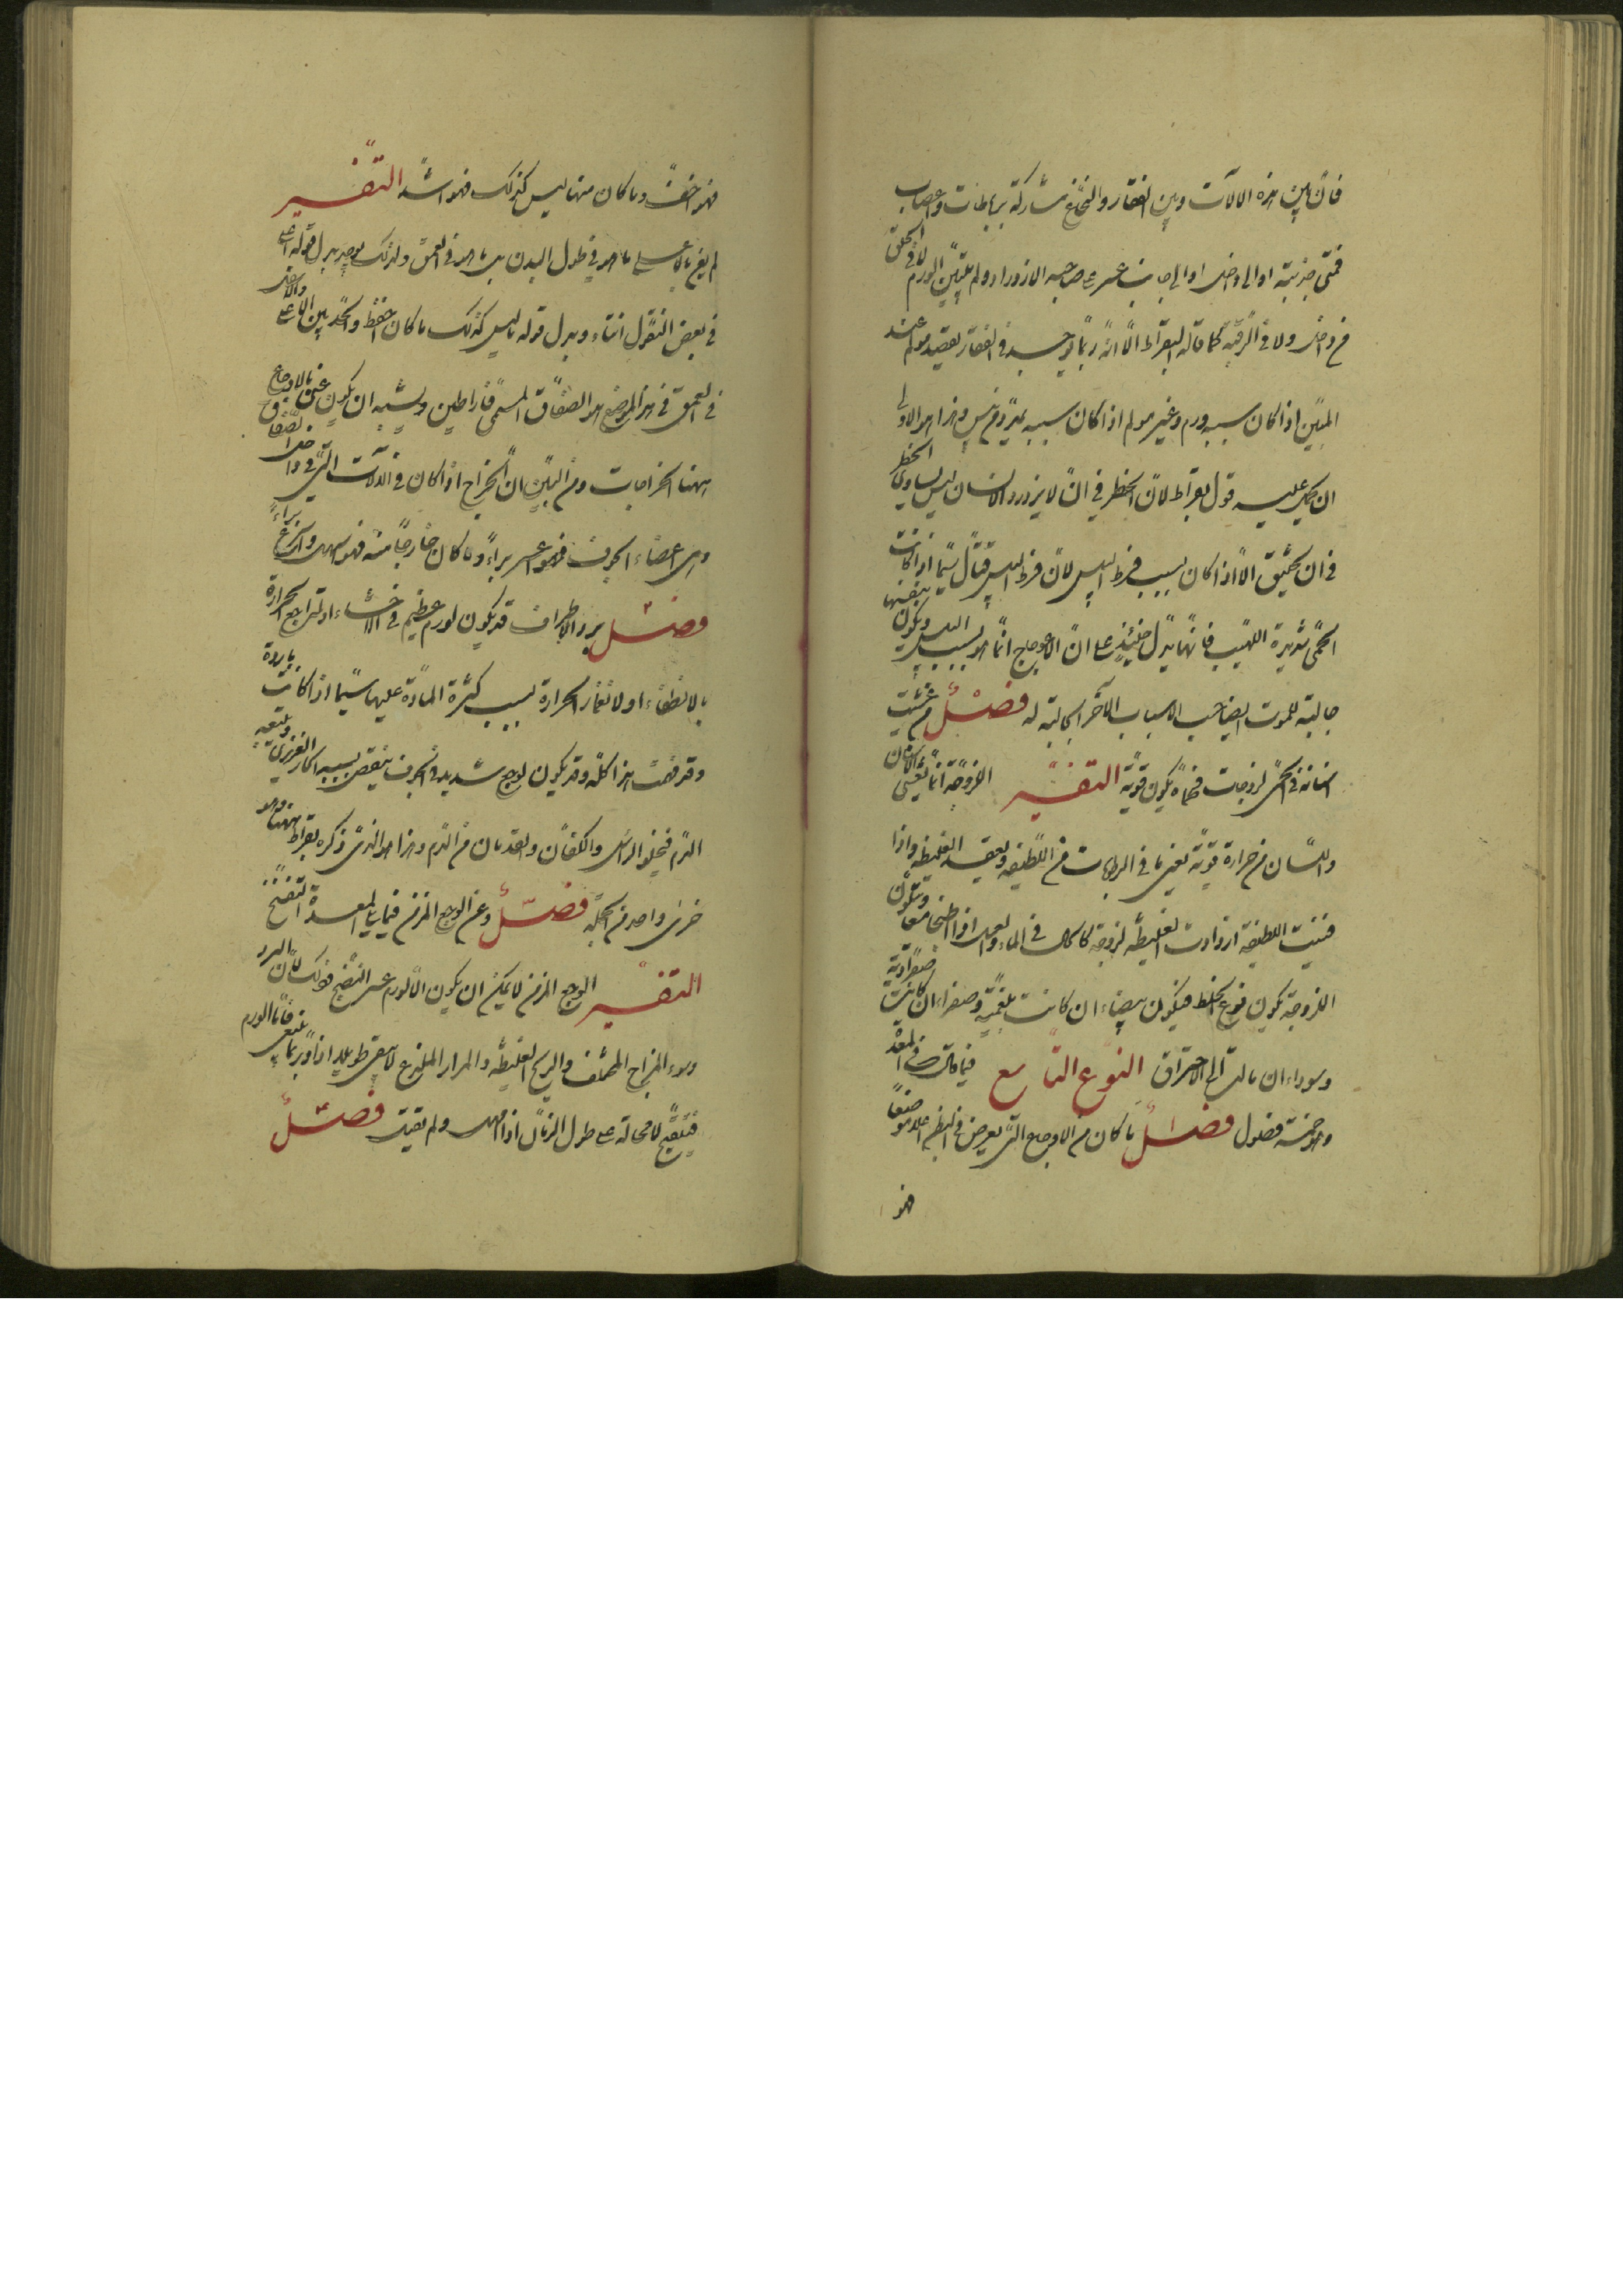 فانّ بين هذه الآلات وبين الفقار والنخاع مشاركة برباطات واعصاب
فمتى جذبته اوالى داخل اوالى جانب عسر على صاحبه الازدراد ولم يتبيّن الورم لا فى الحلق
من داخل ولا فى الرقبة كما قاله ابقراط الّا انّه ربّما يوجد فى الفقار تقصّع مولم عند
اذا كان سببه ورم وغير مولم اذا كان سببه وهذا هو الاولى
ان يحمل عليه قول بقراط لانّ الخطر فى ان لا يزدرد الانسان ليس يساوى الخطر
فى ان يختنق الّا اذا كان بسبب فرط اليبس لانّ فرط اليبس قتّال سيّما اذا كانت
الحمّى شديدة اللهيب فانّها تدلّ حينئذٍ على انّ الاعوجاج انّما هو بسبب اليبس ويكون بنفسها
جالبة للموت ايضا حسب الاسباب الاخر الجالبة له فصل من غشيت
اسنانه فى الحمّى لزوجات فحمّاه يكون قويّة التفسير اللزوجة انّما تغشى الاسنان
واللسان من حرارة قويّة تفنى ما فى الرطوبات من اللطيفة وتعقد الغليظة واذا
فنيت اللطيفة ازدادت الغليظة لزوجة كالحال فى الماء والعسل اذا طبخا معا وتتلوّن
اللزوجة بلون نوع الخلط فيكون بيضاء ان كانت بلغمية وصفراء ان كانت صفراوية
وسوداء ان مالت الى الاحتراق النوع التاسع فيما قاله فى المعدة
وهو خمسة فصول فصل ما كان من الاوجاع التى يعرض فى البطن اعلى موضعاً
فهو
فهو اخفّ وما كان منها ليس كذلك فهو اشدّ التفسير
لم يعن بالاعلى ما هو فى طول البدن بل ما هو فى العمق ولذلك يوجد بدل قوله اعلى
فى بعض النقول انتاء وبدل قوله ما ليس كذلك ما كان اخفض والحدّ بين الاعلى والاسفل
فى العمق فى هذا الموضع هو الصفاق المسمّى فاراطين ويشبه ان يكون عنى بالاوجاع
ههنا الخراجات ومن البيّن انّ الخراج اذا كان فى الآلات التى فى داخل الصفاق
وهى اعضاء الجوف فهو اعسر براءً وما كان خارجا منه فهو اسهل واسرع براءً
فصل برد الاطراف قد يكون لورم عظيم فى الاحشاء او لتراجع الحرارة
بالانطفاء او لانغمار الحرارة بسبب كثرة المادّة عليها سيّما اذا كانت باردة
وقد فهمت هذا كلّه وقد يكون لوجع شديد فى الجوف ينقص بسببه الحار الغريزى ويتبعه
الدم فيخلو الراس والكفّان والقدمان من الدم وهذا هو الذى ذكره بقراط ههنا وهو
جزئى واحد من الجملة فصل وعن الوجع المزمن فيما يلى المعدة التفتّح
التفسير الوجع المزمن لا يمكن ان يكون الّا لورم عسر النضج وذلك لانّ البرد
وسوء المزاج المختلف والريح الغليظة والمرار الملذع لا يبقى طويلا اذا فامّا الورم
فيتقيّح لا محالة على طول الزمان اذا اهمل ولم يقتل فصل